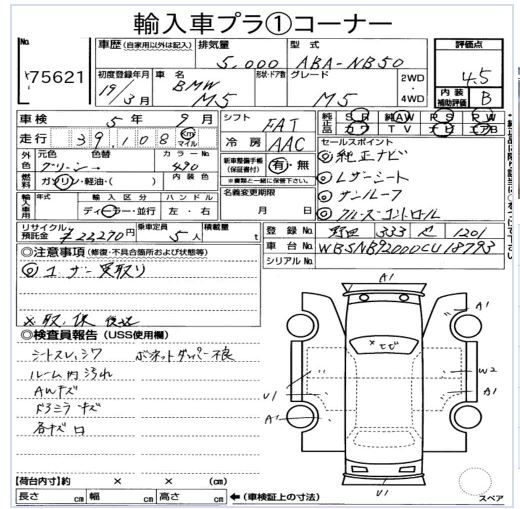 輸入車プラ①コーナー
No.
75621
車歴 (自家用以外は記入) 排気量 型式 評価点
5,000 ABA-NB50 4.5
初度登録年月 車名 形状・ドア数 グレード 2WD・4WD 内装補助評価 B
19/3月 BMW M5 M5
車検 5年 9月 シフト FAT 純正品 SR 純AW PS PW
カワ TV ナビ エアB
走行 39,108 Km マイル 冷房 AAC セールスポイント
外色 元色 色替 カラーNo. 新車整備手帳(保証書付) 有・無
グリーン→ 490 ※書類と一緒に保管下さい。
◎純正ナビ
燃料 ガソリン・軽油・( ) 内装色 名義変更期限
◎レザーシート
輸入車用 年式 輸入区分 ハンドル
ディーラー・並行 左・右 月 日
◎サンルーフ
◎クルーズコントロール
リサイクル預託金 ¥22,270円 乗車定員 5人 積載量 t
登録No. 野田 333 1201
車台No. WBSNB92000CU18793
シリアルNo.
◎注意事項 (修復・不具合箇所および状態等)
◎ユーザー買取り
※取、保 後送
◎検査員報告 (USS使用欄)
シートスレ、シワ ボネットダンパー不良
ルーム内汚れ
AWキズ
ドアミラーキズ
各キズ凹
A1
A1
×とび
W2
U1
A1
A1
U1
スペア
【荷台内寸】約 × × (cm)
長さ cm 幅 cm 高さ cm ←(車検証上の寸法)